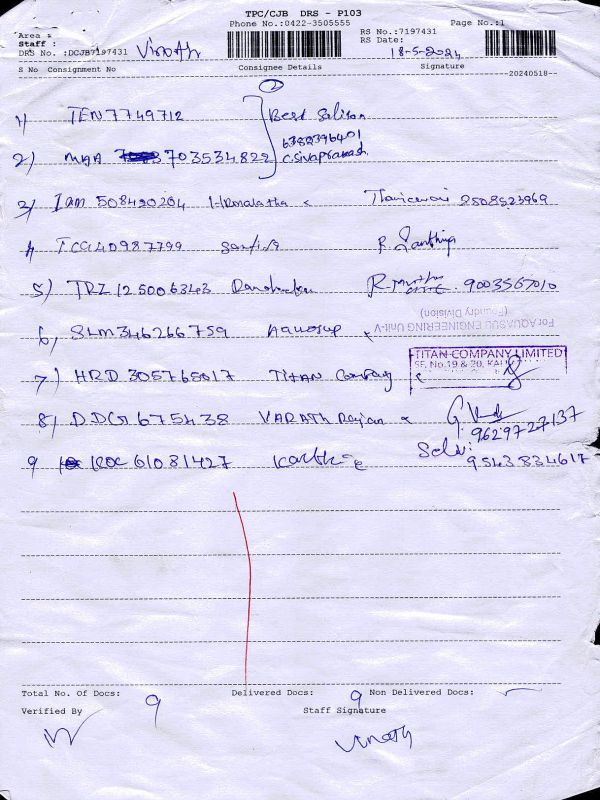 TPC/CJB DRS - P103
Phone No.:0422-3505555
Page No.:1
Area :
Staff :
DRS No. :DCJB7197431 Vinoth
RS No.:7197431
RS Date: 18-5-2024
S No Consignment No Consignee Details Signature
--20240518--
2
1) TEN 7749712 Best
6382396401
2) MAA 703534822 C. Sivaprakash
3) Iam 508490204 Hemalatha 2508523969
4) TCG40987799 R.
5) TRZ 125006343 R. 9003567010
6) SLM346266759 Aquasub
For AQUASUB ENGINEERING Unit-V
(Foundry Division)
TITAN COMPANY LIMITED
SF. No.19 & 20,
7) HRD 305765017 TITAN Company
8) DDG1675438 VARATH Rajan
9629727137
9 KOC 61081427 Selvi
9543834617
Total No. Of Docs: 9 Delivered Docs: 9 Non Delivered Docs:
Verified By Staff Signature
Vinoth